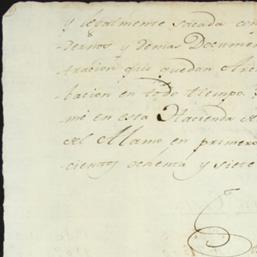 y legalmente sacada con
dernos y demas Documen
tracion que quedan Arc
bacion en todo tiempo.
mè en esta Hacienda de
del Alamo en primero
cientos ochenta y siete